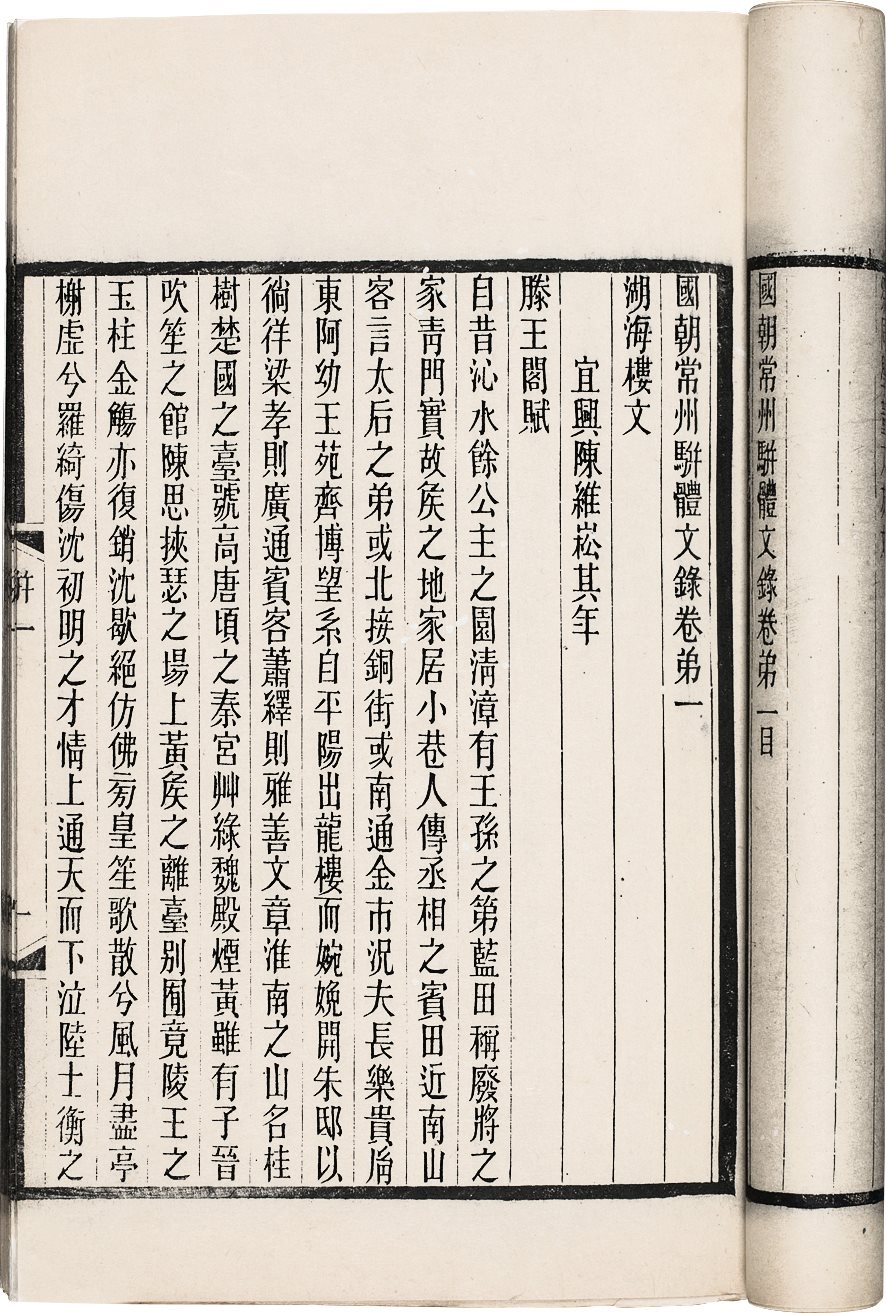 國朝常州駢體文錄卷弟一目
國朝常州駢體文錄卷弟一
湖海樓文
宜興陳維崧其年
滕王閣賦
自昔沁水餘公主之園清漳有王孫之第藍田稱廢將之
家靑門實故矦之地家居小巷人傳丞相之賓田近南山
客言太后之弟或北接銅街或南通金市況夫長樂貴
東阿幼王苑齊博望系自平陽出龍樓而婉娩開朱邸以
徜徉梁孝則廣通賓客蕭繹則雅善文章淮南之山名桂
樹楚國之臺號高唐頃之秦宮艸綠魏殿煙黃雖有子晉
吹笙之館陳思挾瑟之場上黃矦之離臺別囿竟陵王之
玉柱金觴亦復銷沈歇絕仿佛皇笙歌散兮風月盡亭
榭虛兮羅綺傷沈初明之才情上通天而下泣陸士衡之
一